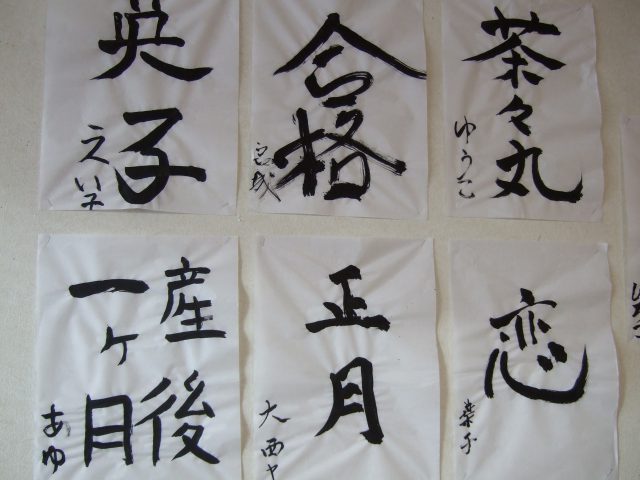 英子
えい子
合格
宮城
茶々丸
ゆうこ
産後
一ケ月
あゆ
正月
大西
恋